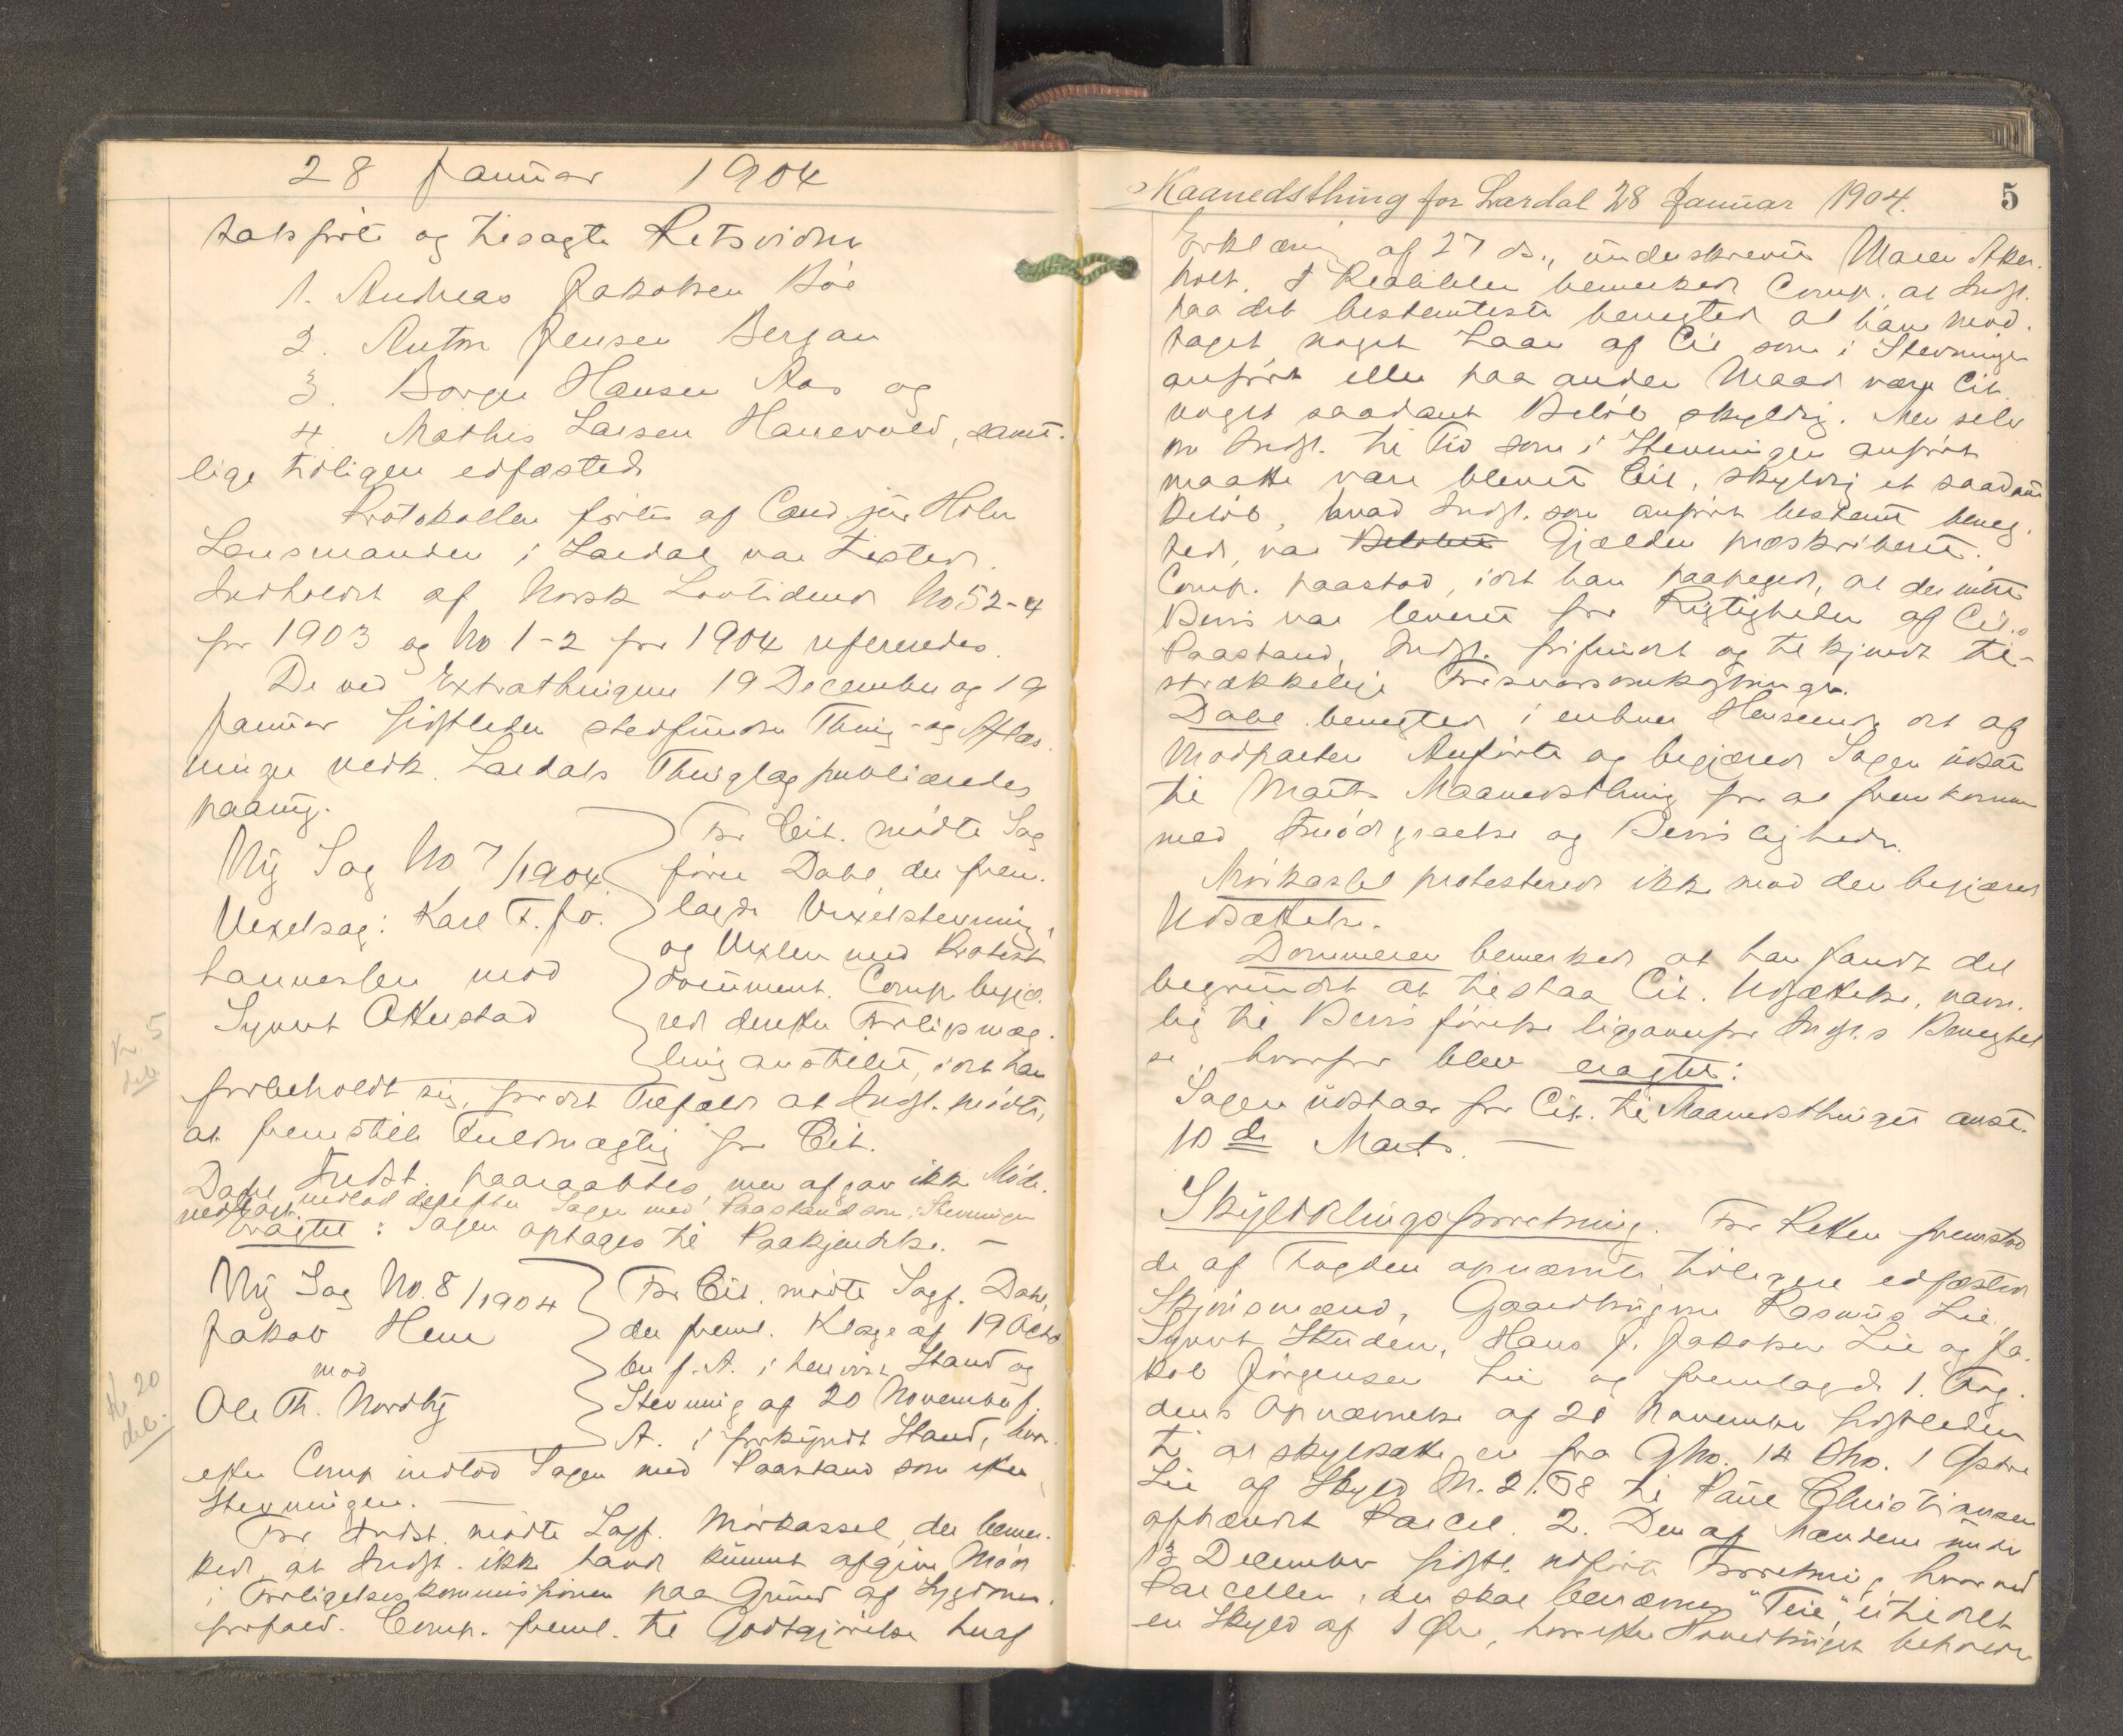 28 Januar 1904
taksførte og tilsagte Retsvidner
1. Andreas Jakobsen Bøe
2. Anton Jensen Bergan
3. Borger Hansen Aas og
4. Mathis Larsen Hanevold, samt-
lige tidligere edfæstede
Protokollen førtes af Cand. jur. Holm
Lensmanden i Lardal var tilsted.
Indholdet af Norsk Lovtidend No 52-4
for 1903 og No 1-2 for 1904 refereredes.
De ved Extrathingene 19 December og 19
Januar sidstleden stedfundne Thing- og Aflæs-
ninger vedk. Lardals Thinglag publiceredes
paany.
Ny Sag No 7/1904
Vexelsag: Karl F. Jo-
hannessen mod
Synvert Akerstad
For Cit. mødte Sag
fører Dahl, der frem-
lagde Vexelstevning,
og Vexlen med Protest
document. Comp. begjæ-
rede derefter Forligsmæg-
ling anstillet, idet han
Kr. 5
del.
forbeholdt sig, for det Tilfælde at Indst. mødte,
at fremstille Fuldmægtig for Cit.
Indst. paaraabtes, men afgav ikke Møde.
Dahl indlod derefter Sagen med Paastand som i Stevningen
nedlagt.
Eragtet: Sagen optages til Paakjendelse. —
Ny Sag No. 8/1904
Jakob Hem
mod
Ole Th. Nordby
For Cit. mødte Sagf. Dahl,
der freml. Klage af 19 Octo
ber f. A. i henvist Stand og
Stevning af 20 November f.
A. i forkyndt Stand, hvor-
Kr. 20
del.
efter Comp. indlod Sagen med Paastand som efter
Stevningen. —
For Indst. mødte Sagf. Mørkassel, der bemær-
kede, at Indst. ikke havde kunnet afgive Møde
i Forligelseskommissionen paa Grund af Sygdoms-
forfald. Comp. freml. til Godtgjørelse heraf
Maanedsthing for Lardal 28 Januar 1904.
5
Erklæring af 27 ds., underskrevet Maren Aker-
holt. I Realiteten bemærkede Comp. at Indst.
paa det bestemteste benegted at have mod-
taget noget Laan af Cit. som i Stevningen
anført eller paa anden Maade være Cit.
noget saadant Beløb skyldig. Men selv
om Indst. til Tid som i Stevningen anført
maatte være blevet Cit. skyldig et saadant
Beløb, hvad Indst. som anført bestemt beneg-
tede, var Gjælden præskriberet.
Comp. paastod, idet han paapegede, at der intet
Bevis var leveret for Rigtigheden af Cit.s
Paastand, Indst. frifundet og tilkjendt til-
strækkelige Forsvarsomkostninger.
Dahl benegted i enhver Henseende det af
Modparten Anførte og begjæred Sagen udsat
til Marts Maanedsthing for at fremkomme
med Imødegaaelse og Bevisligheder.
Mørkassel protestered ikke mod den begjærede
Udsættelse.
Dommeren bemerkede at han fandt det
begrundet at tilstaa Cit. Udsættelse, navn-
lig til Bevisførelse ligeoverfor Indst.s Benegtel
se, hvorfor blev eragtet:
Sagen udstaar for Cit. til Maanedsthinget anst.
10de Marts. —
Skylddelingsforretning. For Retten fremstod
de af Fogden opnævnte, tidligere edfæstede
Skjønsmænd, Gaardbrugerne Rasmus Lie,
Synvert Studen, Hans J. Jakobsen Lie og Ja-
kob Jørgensen Lie og fremlagde 1. Fog-
dens Opnævnelse af 21 November sidstleden
til at skyldsætte en fra Gno. 14 Bno. 1 Østre
Lie af Skyld M. 2.58 til Paul Christiansen
afhændet Parcel. 2. Den af Mændene under
13 December sidstl. udførte Forretning, hvorved
Parcellen, der skal benævnes "Teie", er tildelt
en Skyld af 1 Øre, hvorefter Hovedbruget beholder